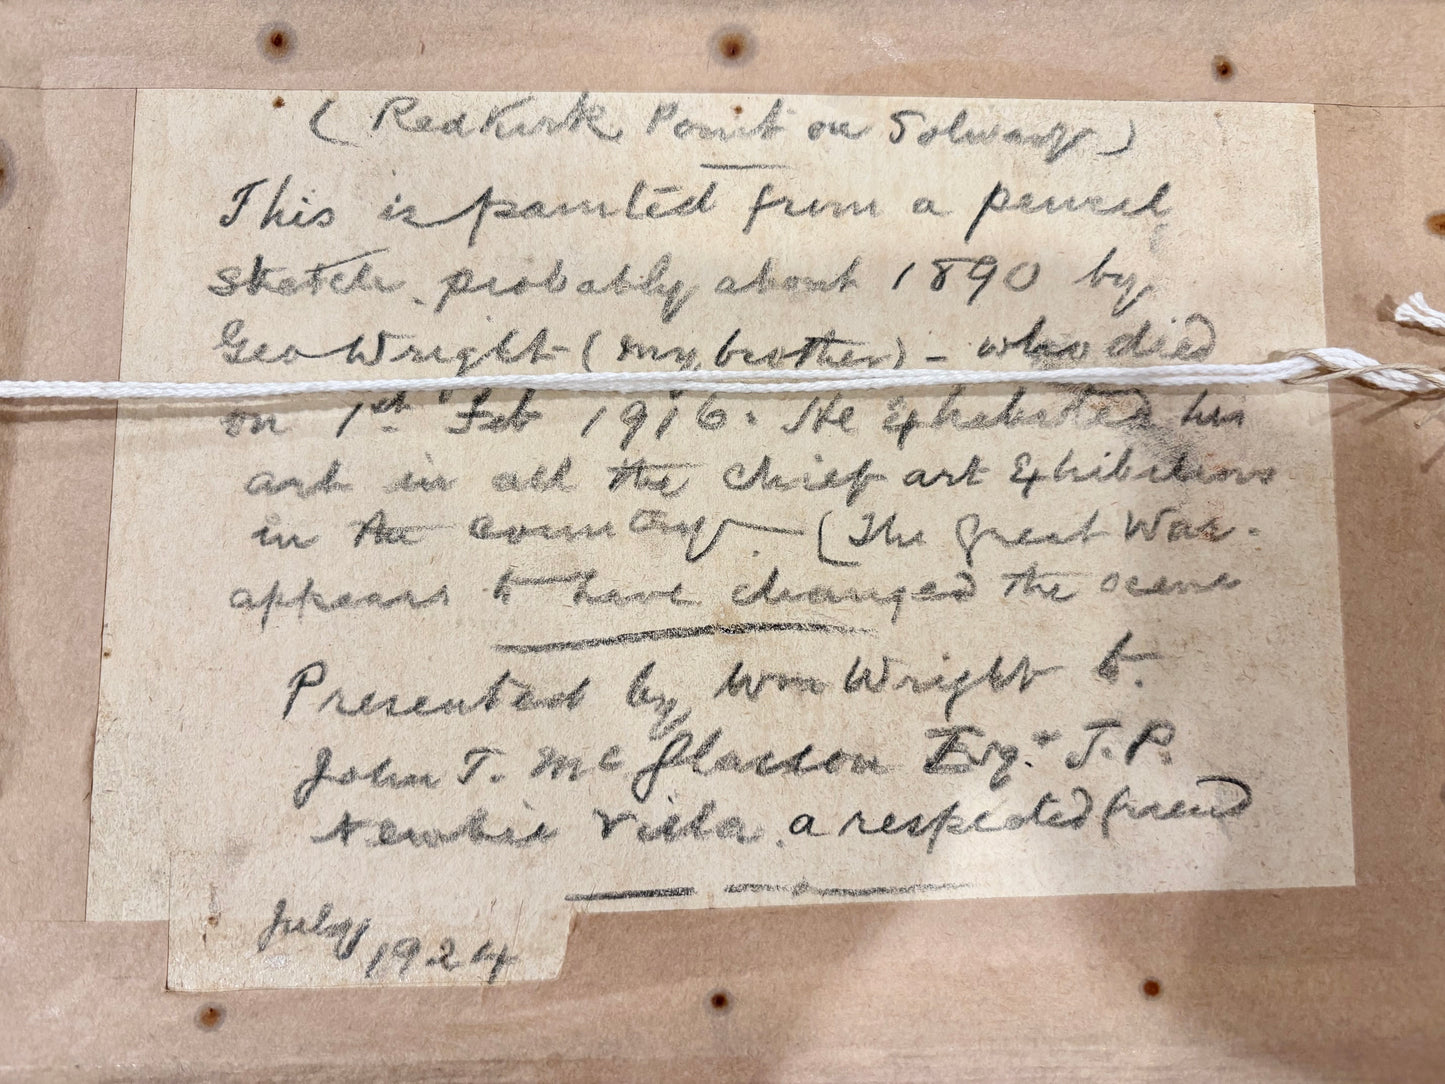 (RedKirk Point on Solway)
This is painted from a pencil
sketch, probably about 1890 by
Geo Wright (my brother) - who died
on 1st Feb 1916. He Exhibited his
art in all the chief art Exhibitions
in the country. — (The Great War.
appears to have changed the scene
Presented by Wm Wright to.
John T. McGlasson Esqr J.P.
Newbie Villa. a respected friend
July 1924